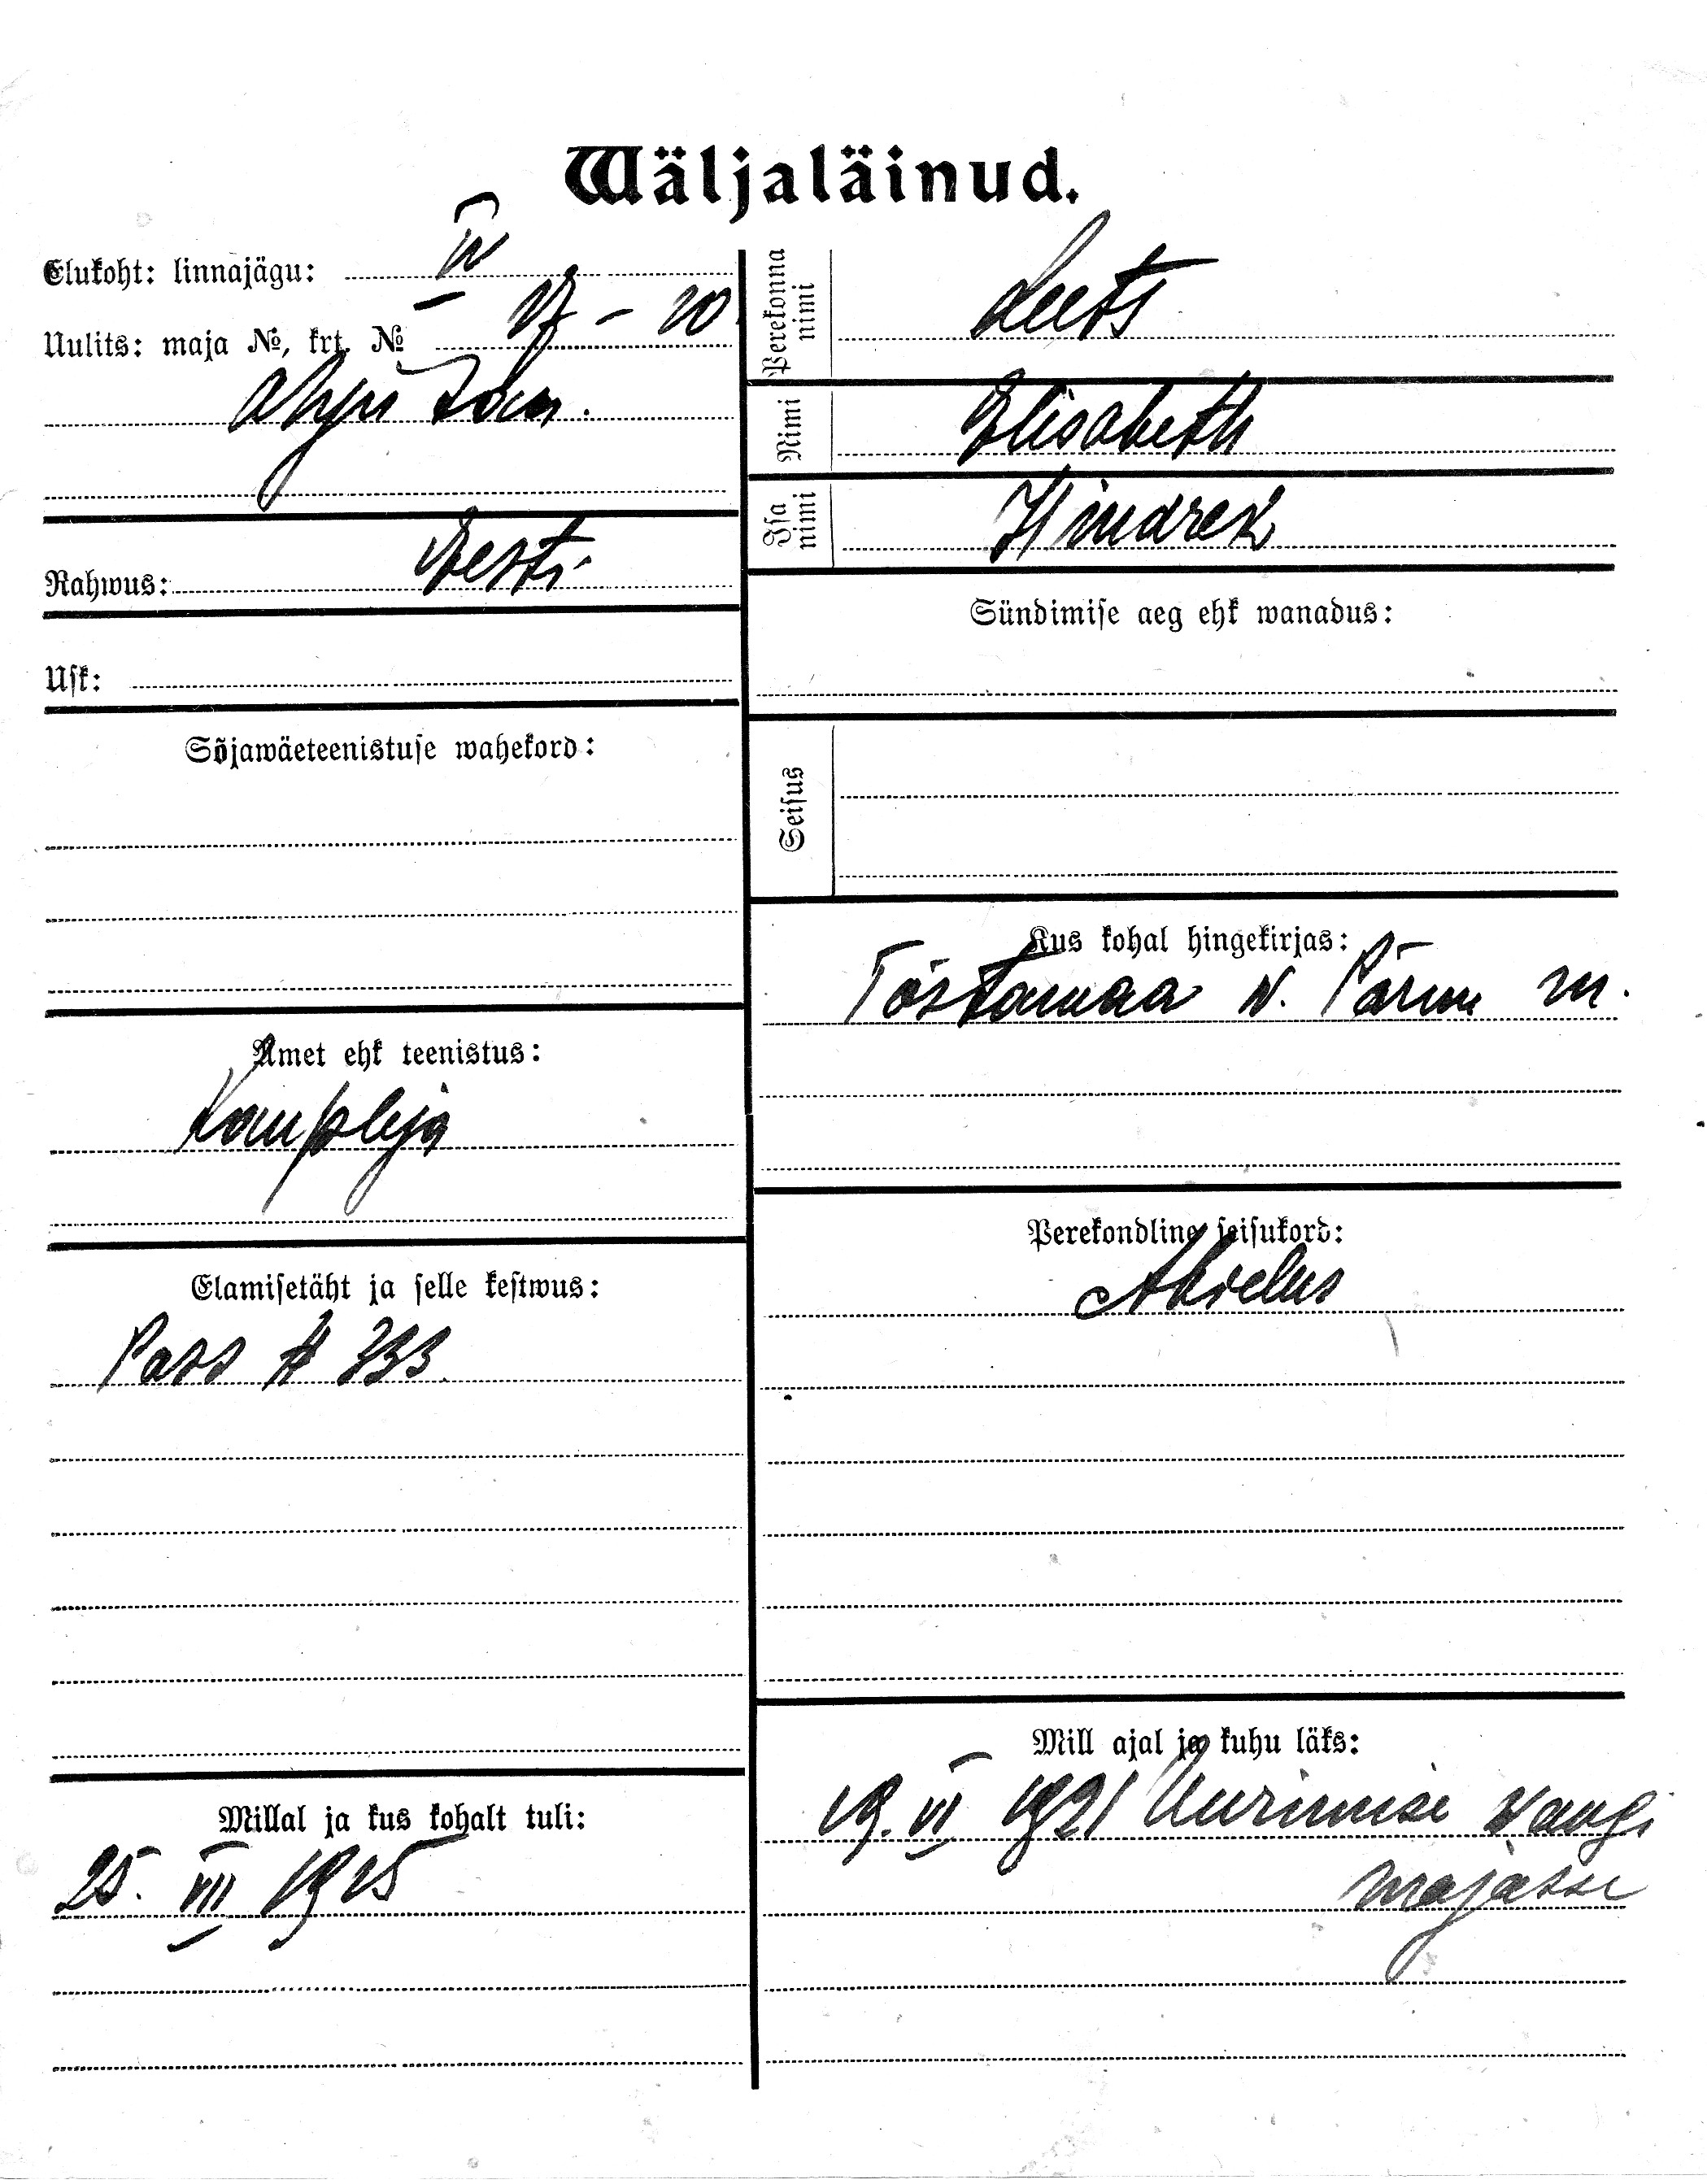 Wäljaläinud.
Elukoht: linnajägu: IV
Uulits: maja №, krt. № 17 – 20.
Ahju tän.
Rahwus: Eesti
Usk:
Sõjawäeteenistuse wahekord:
Amet ehk teenistus:
Kaupleja
Elamisetäht ja selle kestwus:
Pass # 733.
Millal ja kus kohalt tuli:
25. VIII 1915
Perekonna nimi Leets
Nimi Elisabeth
Isa nimi Hindrek
Sündimise aeg ehk wanadus:
Seisus
Kus kohal hingekirjas:
Töstamaa w. Pärnu m.
Perekondline seisukord:
Abielus
Mill ajal ja kuhu läks:
19. VI 1921 Uurimise wangi
majasse